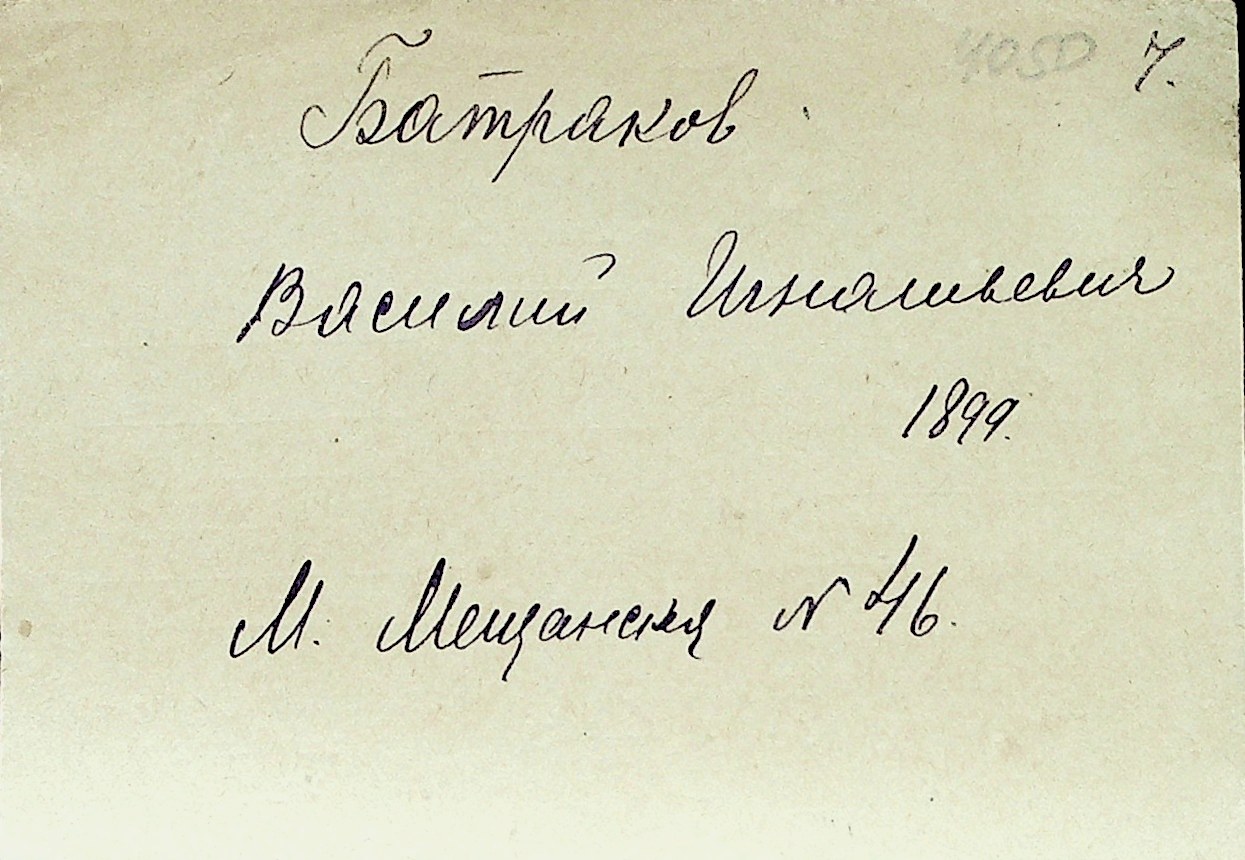 4050 7.
Батраков
Василий Игнатьевич
1899.
М. Мещанская N 46.